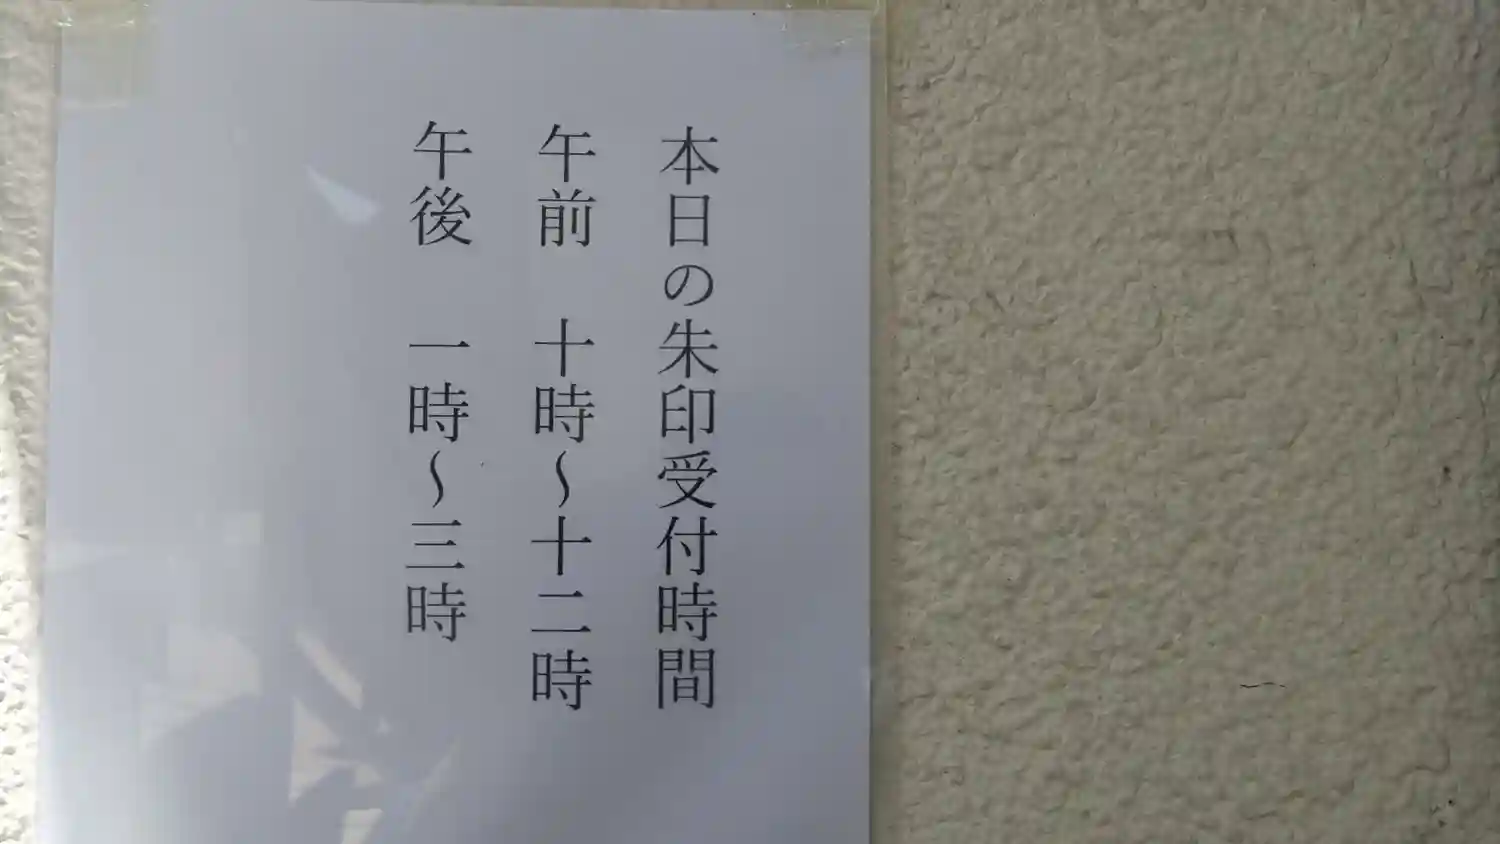 本日の朱印受付時間
午前　十時～十二時
午後　一時～三時